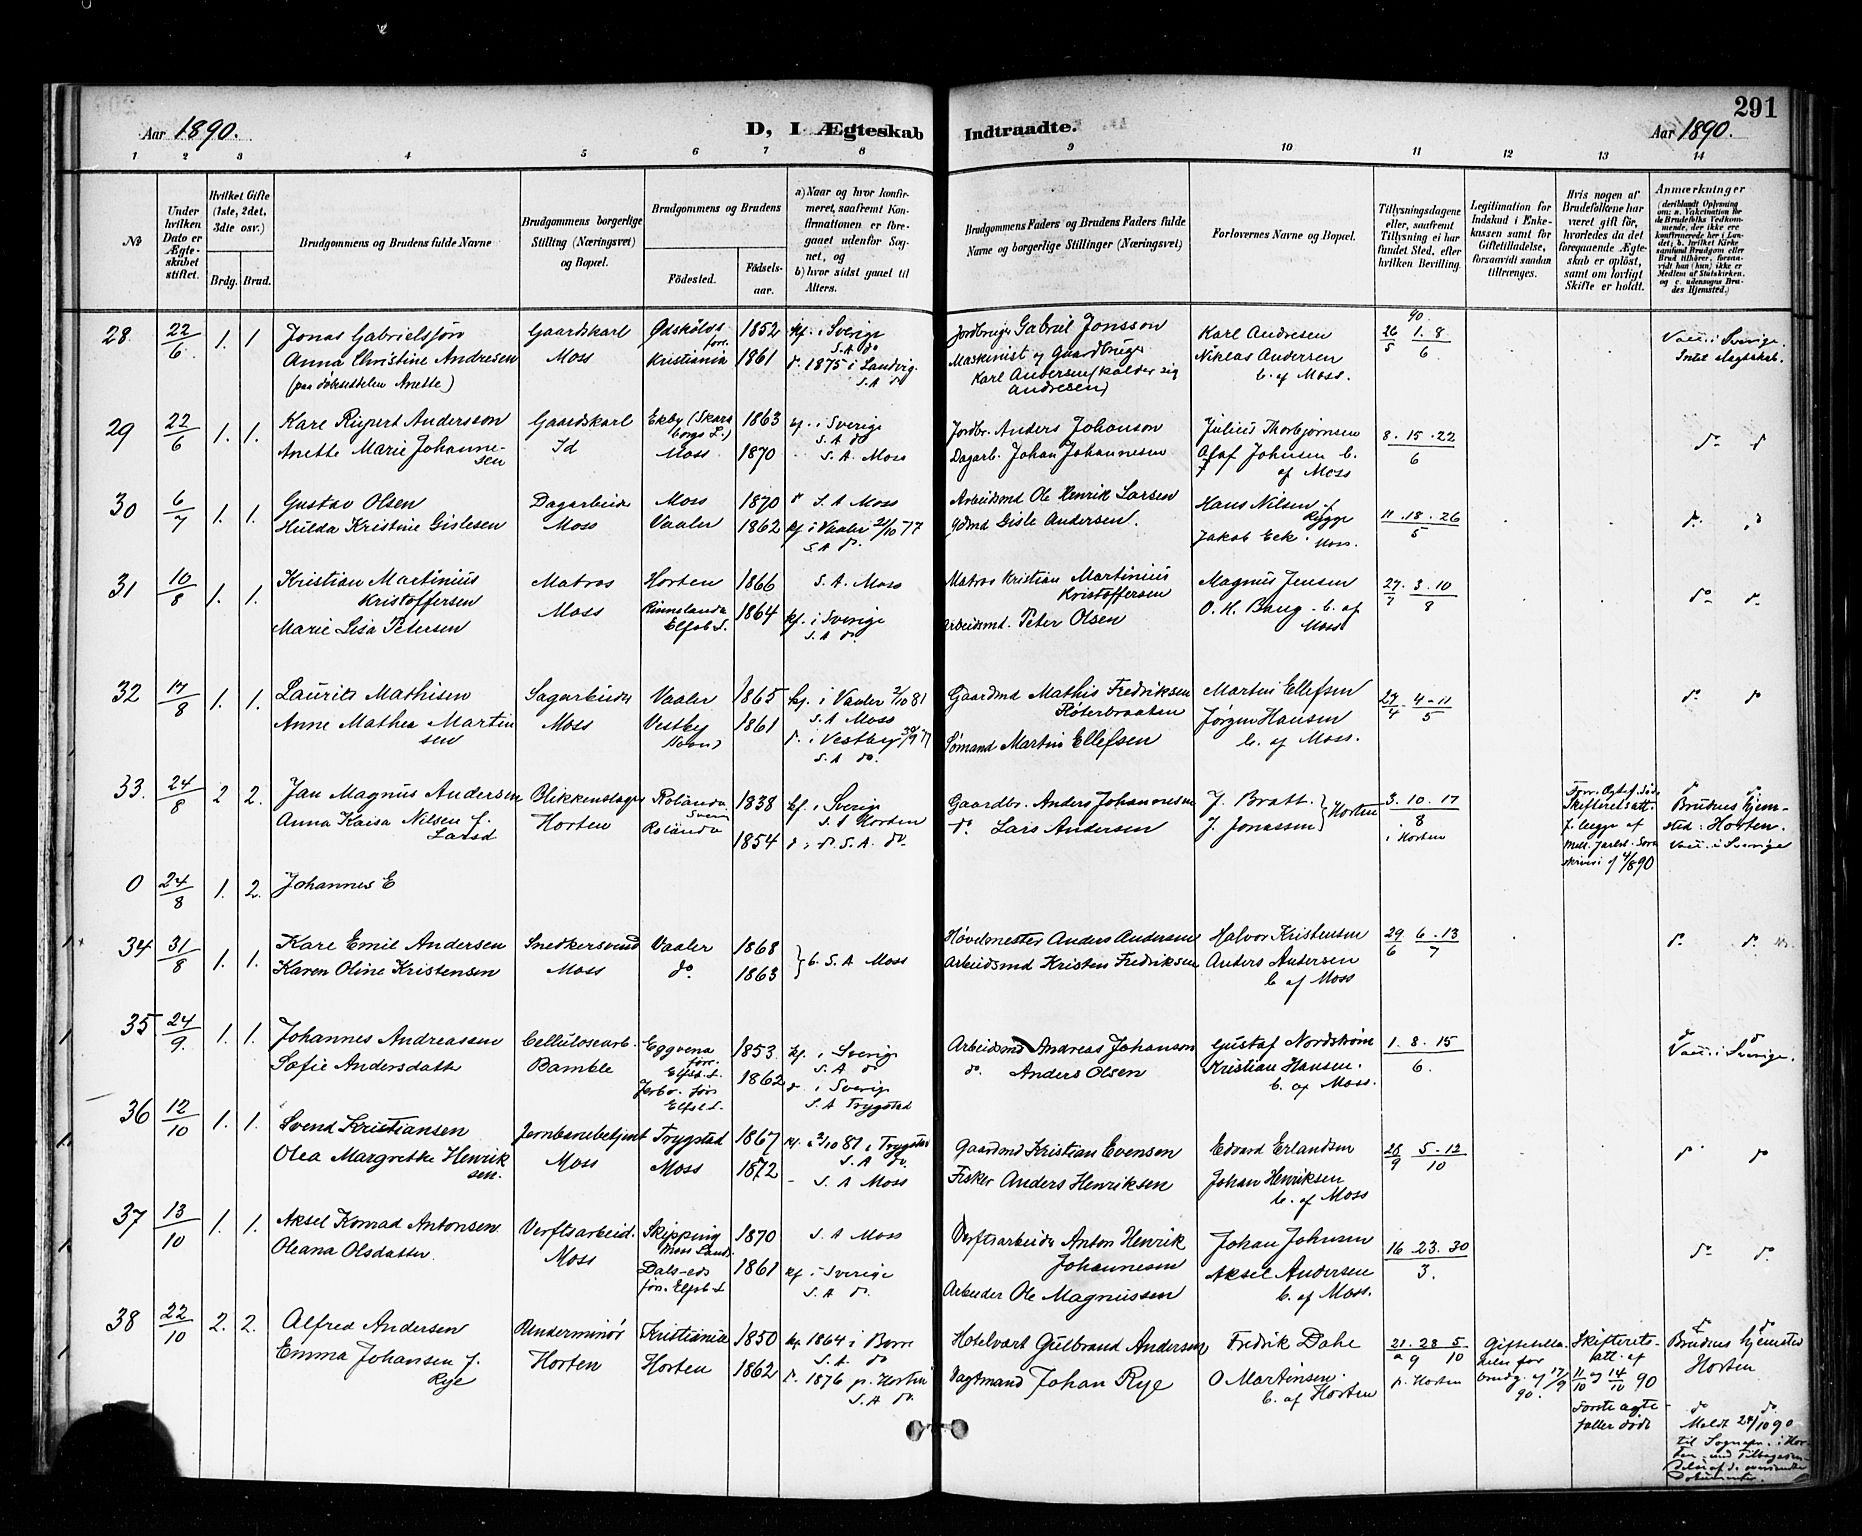 291
Aar 1890. D, I Ægteskab Indtraadte. Aar 1890.
1 2 3 4 5 6 7 8 9 10 11 12 13 14
No
Under hvilken Dato er Ægteskabet stiftet.
Hvilket Gifte (1ste, 2det, 3die osv.)
Brdg. Brud.
Brudgommens og Brudens fulde Navne
Brudgommens borgerlige Stilling (Næringsvei) og Bopæl.
Brudgommens og Brudens
Fødested. Fødselsaar.
a) Naar og hvor konfirmeret, saafremt Konfirmationen er foregaaet udenfor Sognet, og
b) hvor sidst gaaet til Alters.
Brudgommens Faders og Brudens Faders fulde Navne og borgerlige Stillinger (Næringsvei)
Forlovernes Navne og Bopæl.
Tillysningsdagene eller, saafremt Tillysning ei har fundet Sted, efter hvilken Bevilling.
Legitimation for Indskud i Enkekassen samt for Giftetilladelse, forsaavidt saadan tiltrænges.
Hvis nogen af Brudefolkene har været gift før, hvorledes da det foregaaende Ægteskab er opløst, samt om lovligt Skifte er holdt.
Anmærkninger
28 22/6 1. 1 Jonas Gabrielsson Gaardskarl Ødskölds för. 1852 kf. i Sverige S.A. do Jordbruger Gabriel Jonsson Karl Andresen 26/5 1. 8/6 90 Vacc. i Sverige.
Anna Christine Andresen Moss Kristiania 1861 do 1875 i Landvig. S.A. do Maskinist og Gaardbruger Niklas Andersen Intet slægtskab.
(paa dåbseddelen Anette) Karl Andersen (kalder sig Andresen) b. af Moss.
29 22/6 1. 1. Karl Rupert Andersson Gaardskarl Ekby (Skaraborgs L.) 1863 kf. i Sverige S.A. do Jordbr. Anders Johanson Julius Thorbjørnsen 8. 15. 22/6 do do
Anette Marie Johannesen Id Moss 1870 S.A. Moss Dagarb. Johan Johannesen Olaf Johnsen b. af Moss
30 6/7 1. 1. Gustav Olsen Dagarbeider Moss 1870 do S.A Moss Arbeidsmd Ole Henrik Larsen Hans Nilsen Rygge 11. 18. 26/5 do do
Hulda Kristine Gislesen Moss Vaaler 1862 kf. i Vaaler 2/10 77 S.A do. Gdmd Gisle Andersen. Jakob Eek. Moss.
31 10/8 1. 1. Kristian Martinius Kristoffersen Matros Horten 1866 S.A. Moss Matros Kristian Martinius Kristoffersen Magnus Jensen 27/7. 3. 10/8 do do
Marie Lisa Petersen Moss Elfsb L. 1864 kf. i Sverige S.A do. Arbeidsmd. Peter Olsen O. H. Baug. b. af Moss
32 17/8 1. 1. Laurits Mathisen Sagarbeider Vaaler 1865 kf. i Vaaler 2/10 81 S.A Moss Gaardmd Mathis Fredriksen Martin Ellefsen 27/4 4-11/5 do do
Anne Mathea Martinsen Moss Vestby 1861 do. i Vestby 30/9 77 S.A. do. Sømand Martin Ellefsen Jørgen Hansen b. af Moss.
33. 24/8 2 2. Jan Magnus Andersen Blikkenslager Rolanda Sverig 1838 kf. i Sverige S.A Horten Gaardbr. Anders Johannesen J. Bratt. 3. 10. 17/8 i Horten
Anna Kaisa Nilsen f. Larsd Horten Rolanda 1854 do i do. S.A. do. do. Lars Andersen J. Jonassen Horten
Brudens Hjemsted: Horten. Vacc. i Sverige
0 24/8 1. 2. Johannes E
34 31/8 1. 1. Karl Emil Andersen Snedkersvend Vaaler 1868 b. S.A Moss Høvelmester Anders Andersen Halvor Kristensen 29/6 6. 13/7 do. do.
Karen Oline Kristensen Moss do. 1863 Arbeidsmd Kristen Fredriksen Anders Andersen b af Moss
35 24/9. 1. 1. Johannes Andreassen Cellulosearb. Eggvena för. Elfsb. L. 1853. kf. i Sverige S.A do Arbeidsmd Andreas Johanson Gustaf Nordstrøm 1. 8. 15/6. do do
Sofie Andersdatter Bamble Elfsb L. 1862 do. i Sverige S.A Trygstad do. Anders Olsen Kristian Hansen. b. af Moss. Vacc. i Sverige.
36 12/10 1. 1. Svend Kristiansen Jernbanebetjent Trygstad 1867 kf. 2/10 81 i Trygstad S.A do. Gaardmd Kristian Evensen Edvard Erlandsen 28/9 5. 12/10 do do
Olea Margrethe Henriksen. Moss Moss 1872 S.A Moss Fisker Anders Henriksen Johan Henriksen b. af Moss
37 13/10 1. 1. Aksel Konrad Antonsen Verftsarbeid. Skipping Moss Land. 1870 S.A Moss Verftsarbeider Anton Henrik Johannesen Johan Johnsen 16 23. 30/3. do do.
Oleana Olsdatter. Moss Dals-eds för. Elfsb L 1861 kf. i Sverige S.A do. Arbeider Ole Magnussen Aksel Andersen b. af Moss.
38 22/10 2. 2. Alfred Andersen Underminør Kristiania 1850 kf. 1864 i Borre S.A. do Hotelvært Gulbrand Andersen Fredrik Dahl 21. 28/9 5/10 p. Horten
Emma Johansen f. Rye Horten Horten 1862 do. 1876 p. Horten S.A do. Vagtmand Johan Rye O Martinsen. b. af Horten
Giftetilladelse for brudg. af 17/9 90.
Skifteretsatt. af 11/10 og 14/10 90 Første ægtefæller døde
do do Brudens Hjemsted Horten
do do. Meldt 24/10 90 til Sognepr. i Horten